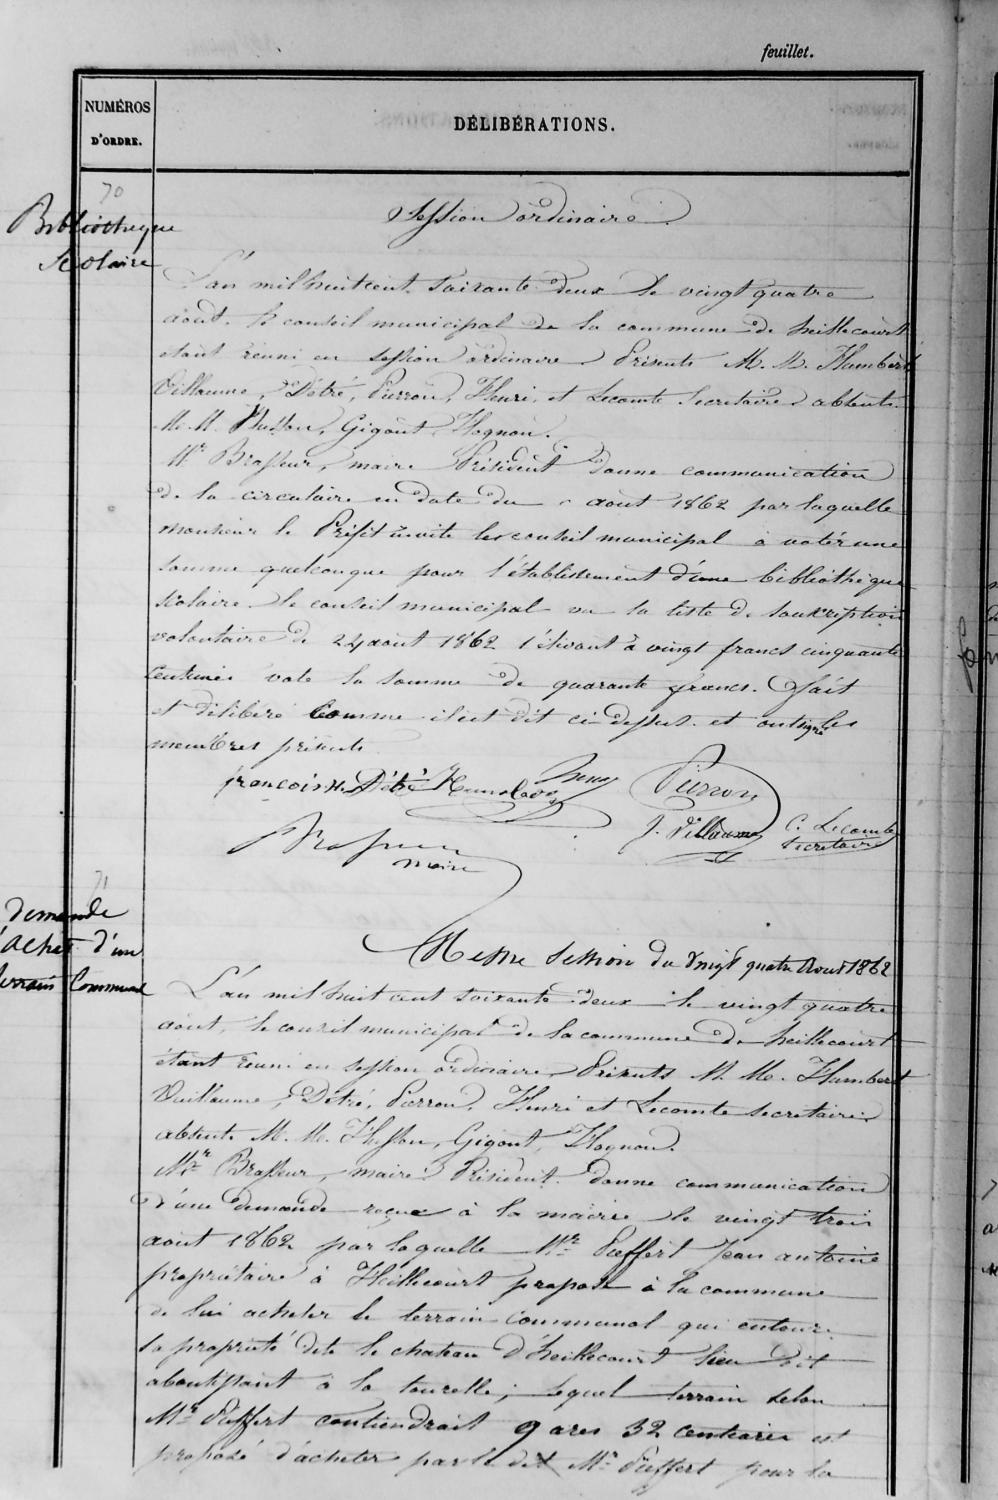 feuillet.
NUMÉROS
D'ORDRE.
DÉLIBÉRATIONS.
70
Bibliotheque
Scolaire
Session ordinaire.
L'an mil huit cent soixante deux le vingt quatre
août, le conseil municipal de la commune de heillecourt
étant réuni en session ordinaire Présents M. M. Humbert
Villaume, Détré, Pierron, Henri, et Lecomte Secretaire absents
M. M. Husson, Gigout, Hognon.
Mr Brasseur, maire Président donne communication
de la circulaire en date du août 1862 par laquelle
monsieur le Préfet invite le conseil municipal à voter une
somme quelconque pour l'établissement d'une bibliothèque
scolaire. le conseil municipal vu la liste de souscription
volontaire de 24 août 1862 s'élevant à vingt francs cinquante
centimes vote la somme de quarante francs. fait
et délibéré comme il est dit ci-dessus et ont signé les
membres présents
françois H. Détré Humbert Henry Pierron
J. Villaume C. Lecomte
Secretaire
Brasseur
maire
71
Demande
d'achat d'un
terrain Communal
Meme Session du Vingt quatre Aout 1862
L'an mil huit cent soixante deux le vingt quatre
août, le conseil municipal de la commune de heillecourt
étant réuni en session ordinaire, Présents M. M. Humbert
Vuillaume, Détré, Pierron, Henri et Lecomte secretaire
absents M. M. Husson, Gigout, Hognon.
Mr Brasseur, maire Président donne communication
d'une demande reçue à la mairie le vingt trois
août 1862 par laquelle Mr Pieffert Jean antoine
propriétaire à Heillecourt propose à la commune
de lui acheter le terrain Communal qui entoure
sa propriété dite le chateau d'heillecourt lieu dit
aboutissant à la tourelle; lequel terrain selon
Mr Pieffert contiendrait 9 ares 32 centiares est
proposé d'acheter par le dit Mr Pieffert pour la